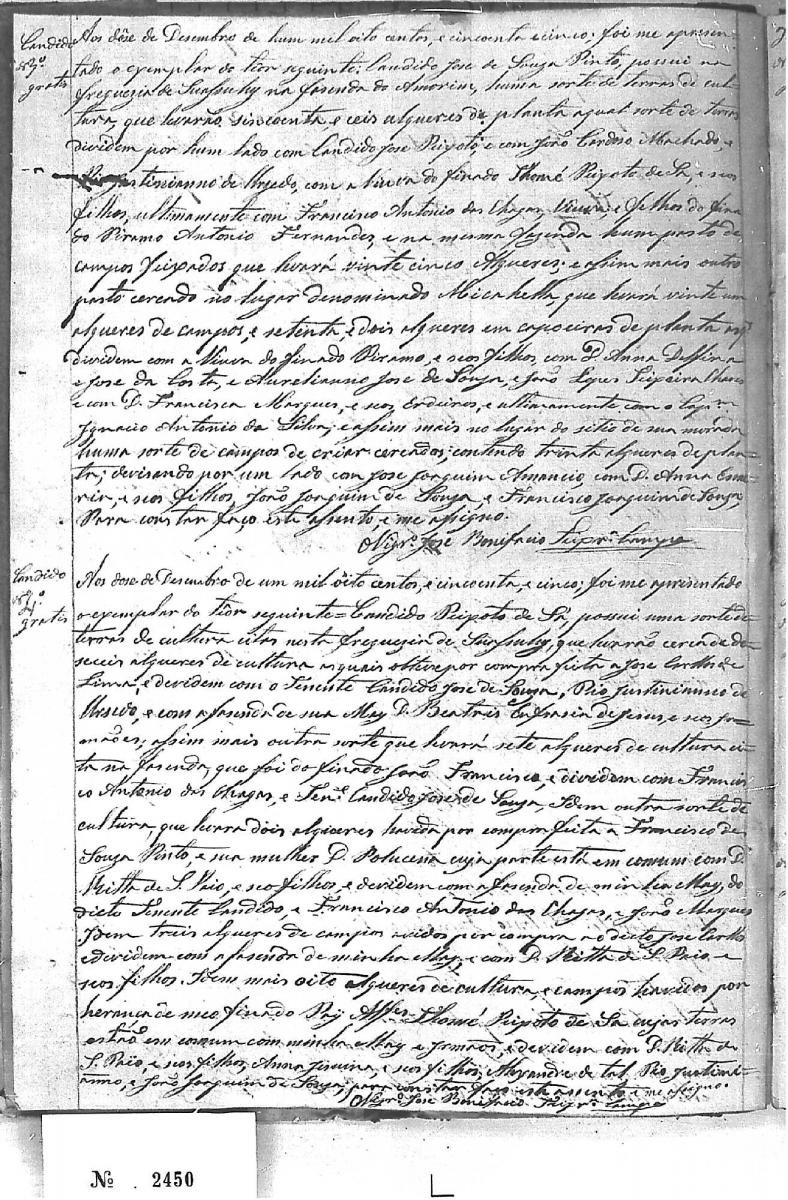 Candido
Nº 3º
gratis
Aos dôse de Desembro de hum mil oito centos, e cincoenta e cinco; foi me apresen-
tado o exemplar do têor seguinte: Candido Jose de Souza Pinto, possui na
freguezia de Suassuhy na fasenda do Amorim, huma sorte de terras de cul-
tura, que levarão sincoenta e ceis alqueres de planta a qual sorte de terras
dividem por hum lado com Candido Jose Peixoto e com João Cardoso Machado, e
Pio Justinianno de Asevedo, com a viuva do finado Thomé Peixoto de Sá, e seos
filhos, ultimamente com Francisco Antonio das Chagas, Viuva e filhos do fina-
do Piramo Antonio Fernandes, e na mesma Fazenda hum pasto de
campos feixados que levará vinte cinco Alqueres; e assim mais outro
pasto cercado no lugar denominado Micahella, que levará vinte um
alqueres de campos, e setenta, e dois alqueres em capoeiras de planta
dividem com a Viuva do finado Piramo, e seos filhos, com D. Anna Delfina
e Jose da Costa, e Aurelianno Jose de Souza, e João Lopes Teixeira Chaves
e com D. Francisca Marques, e seos Erdeiros, e ultimamente com o Capᵐ
Ignacio Antonio da Silva; e assim mais no lugar do sitio de sua morada
huma sorte de campos de criar cercados; contendo trinta alqueres de plan-
ta; devisando por um lado com Jose Joaquim Amancio, com D. Anna
e seos filhos, João Joaquim de Souza, e Francisco Joaquim de Souza,
Para constar faço este assento, e me assigno.
O Vigrº. José Bonifacio
Candido
Nº 4º
gratis
Aos dose de Desembro de um mil oito centos, e cincoenta, e cinco; foi me apresentado
o exemplar do têor seguinte = Candido Peixoto de Sá, possui uma sorte de
terras de cultura citas nesta freguezia de Suassuhy, que levarão cerca de de-
seceis alqueres de cultura as quais obtive por compra feita a Jose
Lima, e devidem com o Tenente Candido Jose de Sousa, Pio Justinianno de
Asevedo, e com a fasenda de sua May D. Beatris Eufrasia de Jesus, e seos ir-
mãoes; assim mais outra sorte que levará sete alqueres de cultura ci-
ta na fasenda, que foi do finado João Francisco, e dividem com Francis-
co Antonio das Chagas, e Tenᵉ Candido Jose de Souza, Idem outra sorte de
cultura, que levra dois alqueres havida por compra feita a Francisco de
Souza Pinto, e sua mulher D. Policena cuja parte está em comum com D.
Ritta de S. Paio, e seos filhos, e devidem com a fasenda de minha May, do
dicto Tenente Candido, e Francisco Antonio das Chagas, e João Marques
Idem treis alqueres de campos avidos por compra ao dicto Jose
e devidem com a fasenda de minha May, e com D. Ritta de S. Paio e
seos filhos. Idem mais oito alqueres de cultura, e campos havidos por
herança de meo finado Pay Alfes Thomé Peixoto de Sá cujas terras
estão em comum com minha May e Irmãos, e devidem com D. Ritta de
S. Paio, e seos filhos, Anna e seos filhos, Alexandre de tal, Pio Justini-
anno, e João Joaquim de Souza, para constar faço este assento e me assigno.
O Vigrº José Bonifacio
Nº 2450